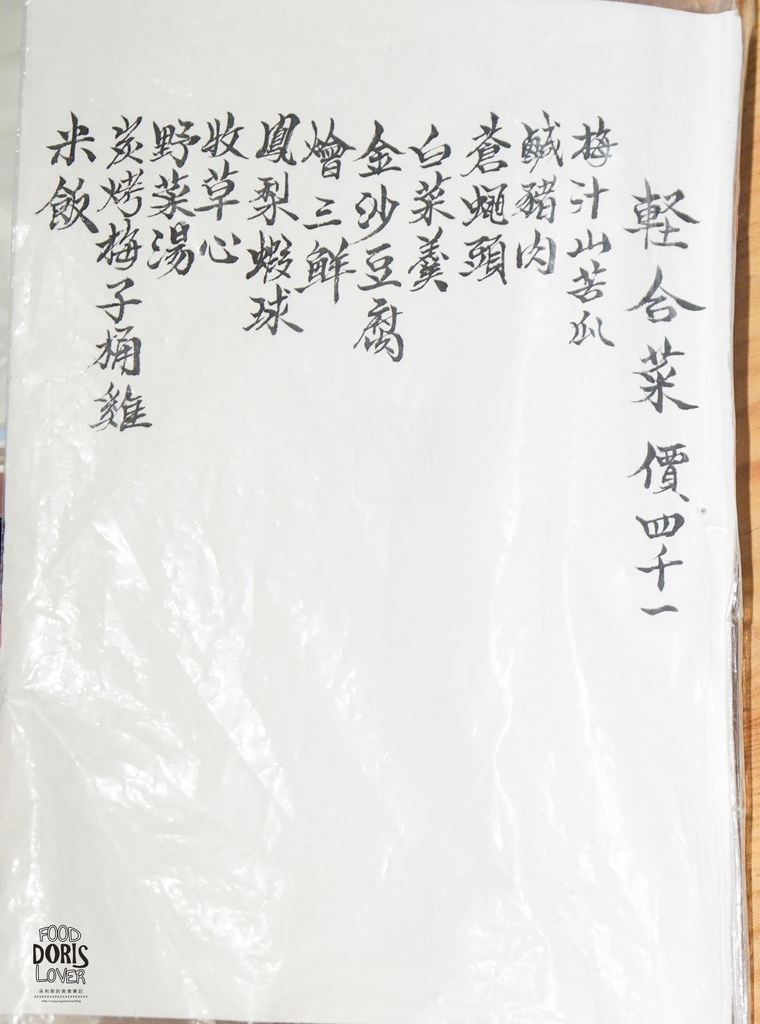 軽合菜 價四千一
梅汁山苦瓜
鹹豬肉
蒼蠅頭
白菜羹
金沙豆腐
燴三鮮
鳳梨蝦球
牧草心
野菜湯
炭烤梅子桶雞
米飯
FOOD
DORIS
LOVER